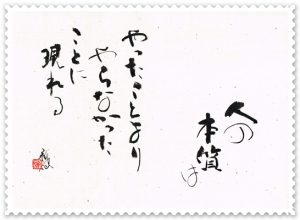 人の
本質は
やったことより
やらなかった
ことに
現れる